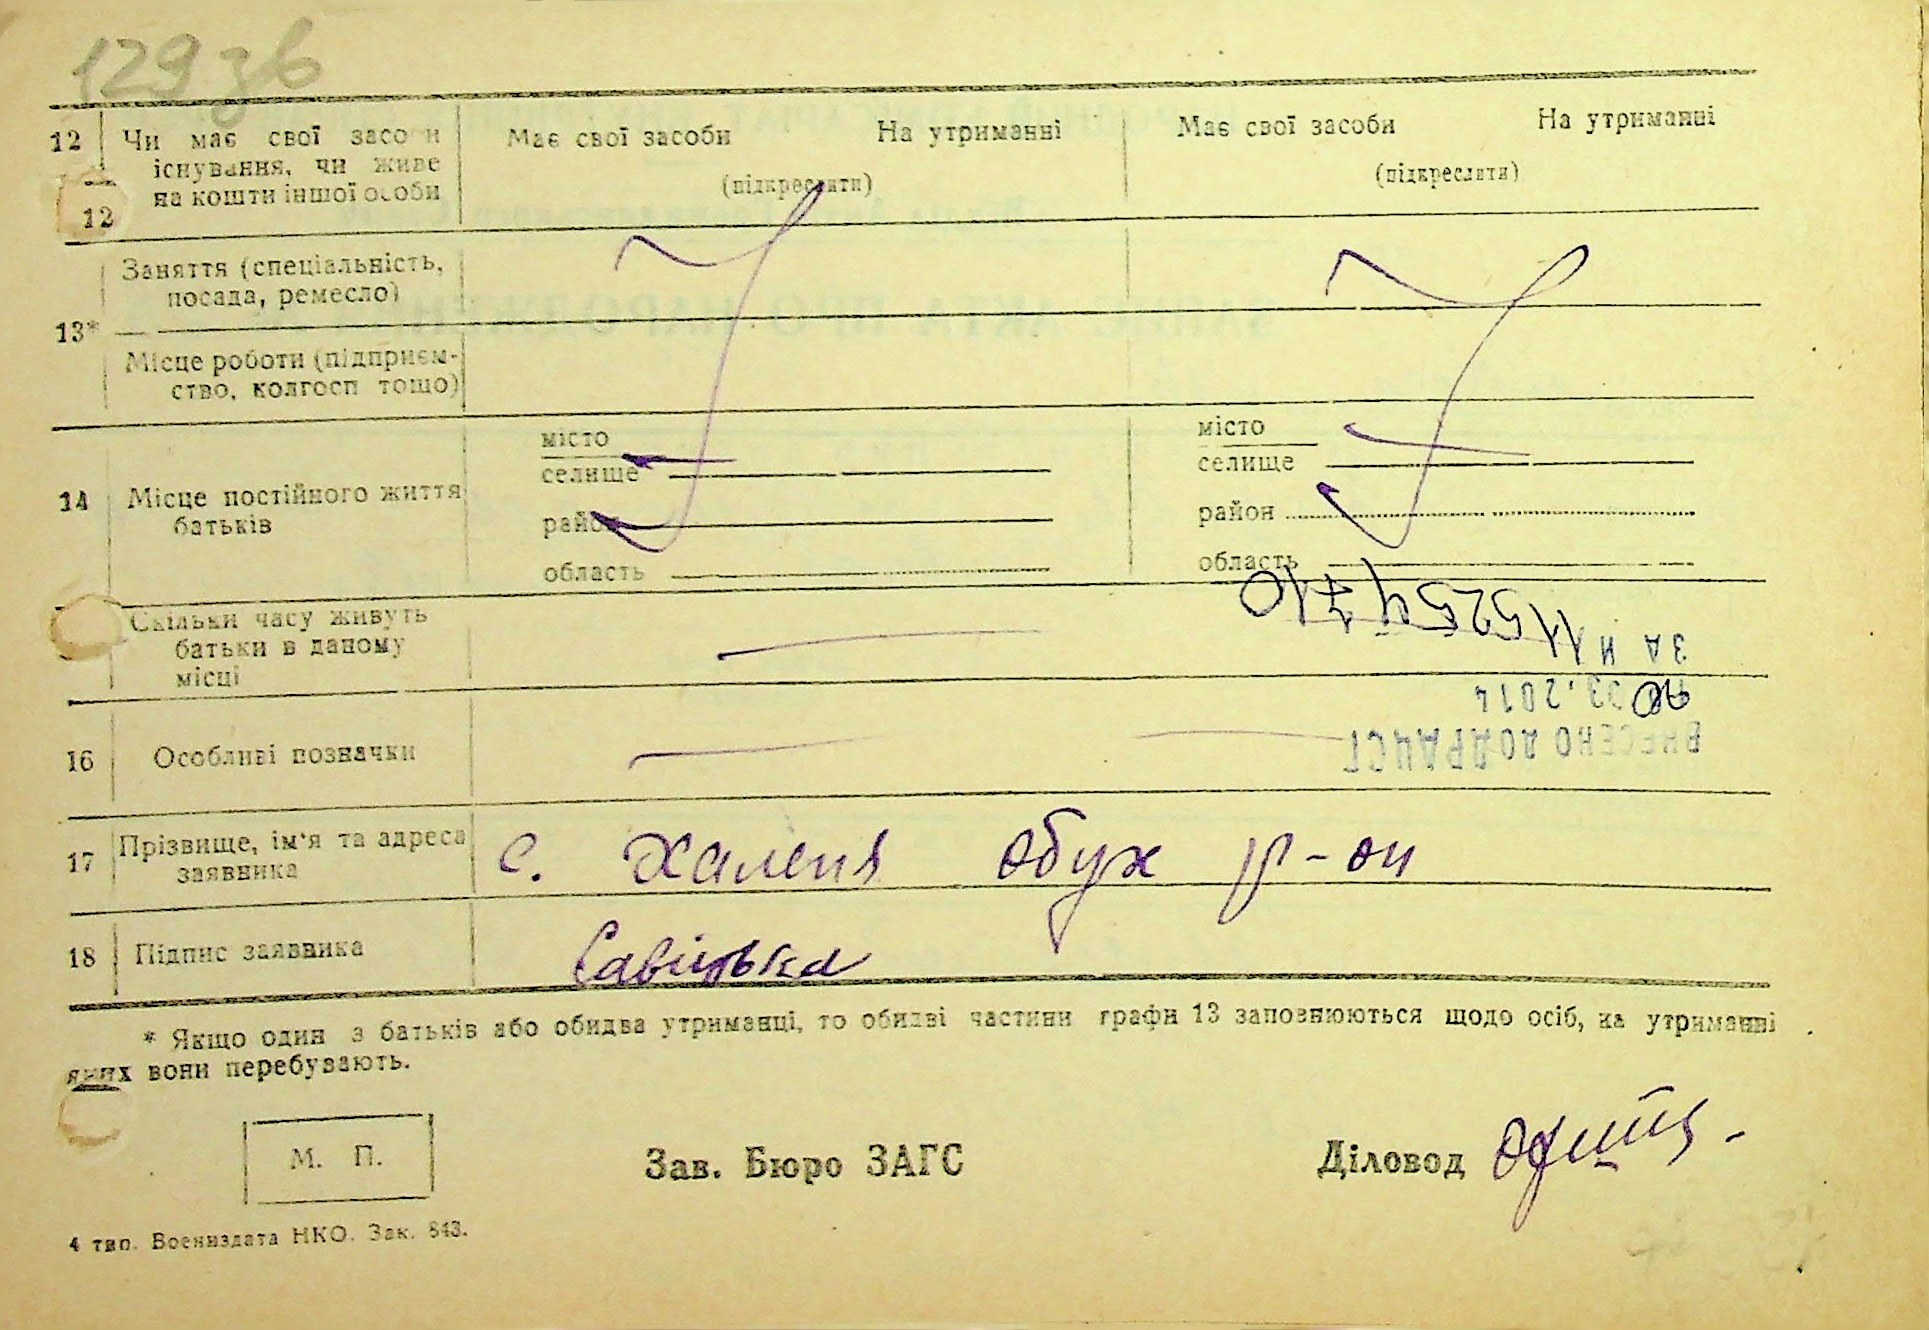 129 зв
12 Чи має свої засоби Має свої засоби На утриманні Має свої засоби На утриманні
існування, чи живе (підкреслити) (підкреслити)
на кошти іншої особи
12
Заняття (спеціальність,
посада, ремесло)
13*
Місце роботи (підприєм-
ство, колгосп тощо)
місто місто
селище селище
14 Місце постійного життя
батьків
район район
область область
Скільки часу живуть
батьки в даному
місці
ВНЕСЕНО ДО ДРАЦСГ
03.2014
ЗА N
16 Особливі позначки
17 Прізвище, ім'я та адреса
заявника
с. Халепя Обух р-он
18 Підпис заявника Савицька
* Якщо один з батьків або обидва утриманці, то обидві частини графи 13 заповнюються щодо осіб, на утриманні
яких вони перебувають.
М. П. Зав. Бюро ЗАГС Діловод
4 тип. Воениздата НКО. Зак. 843.